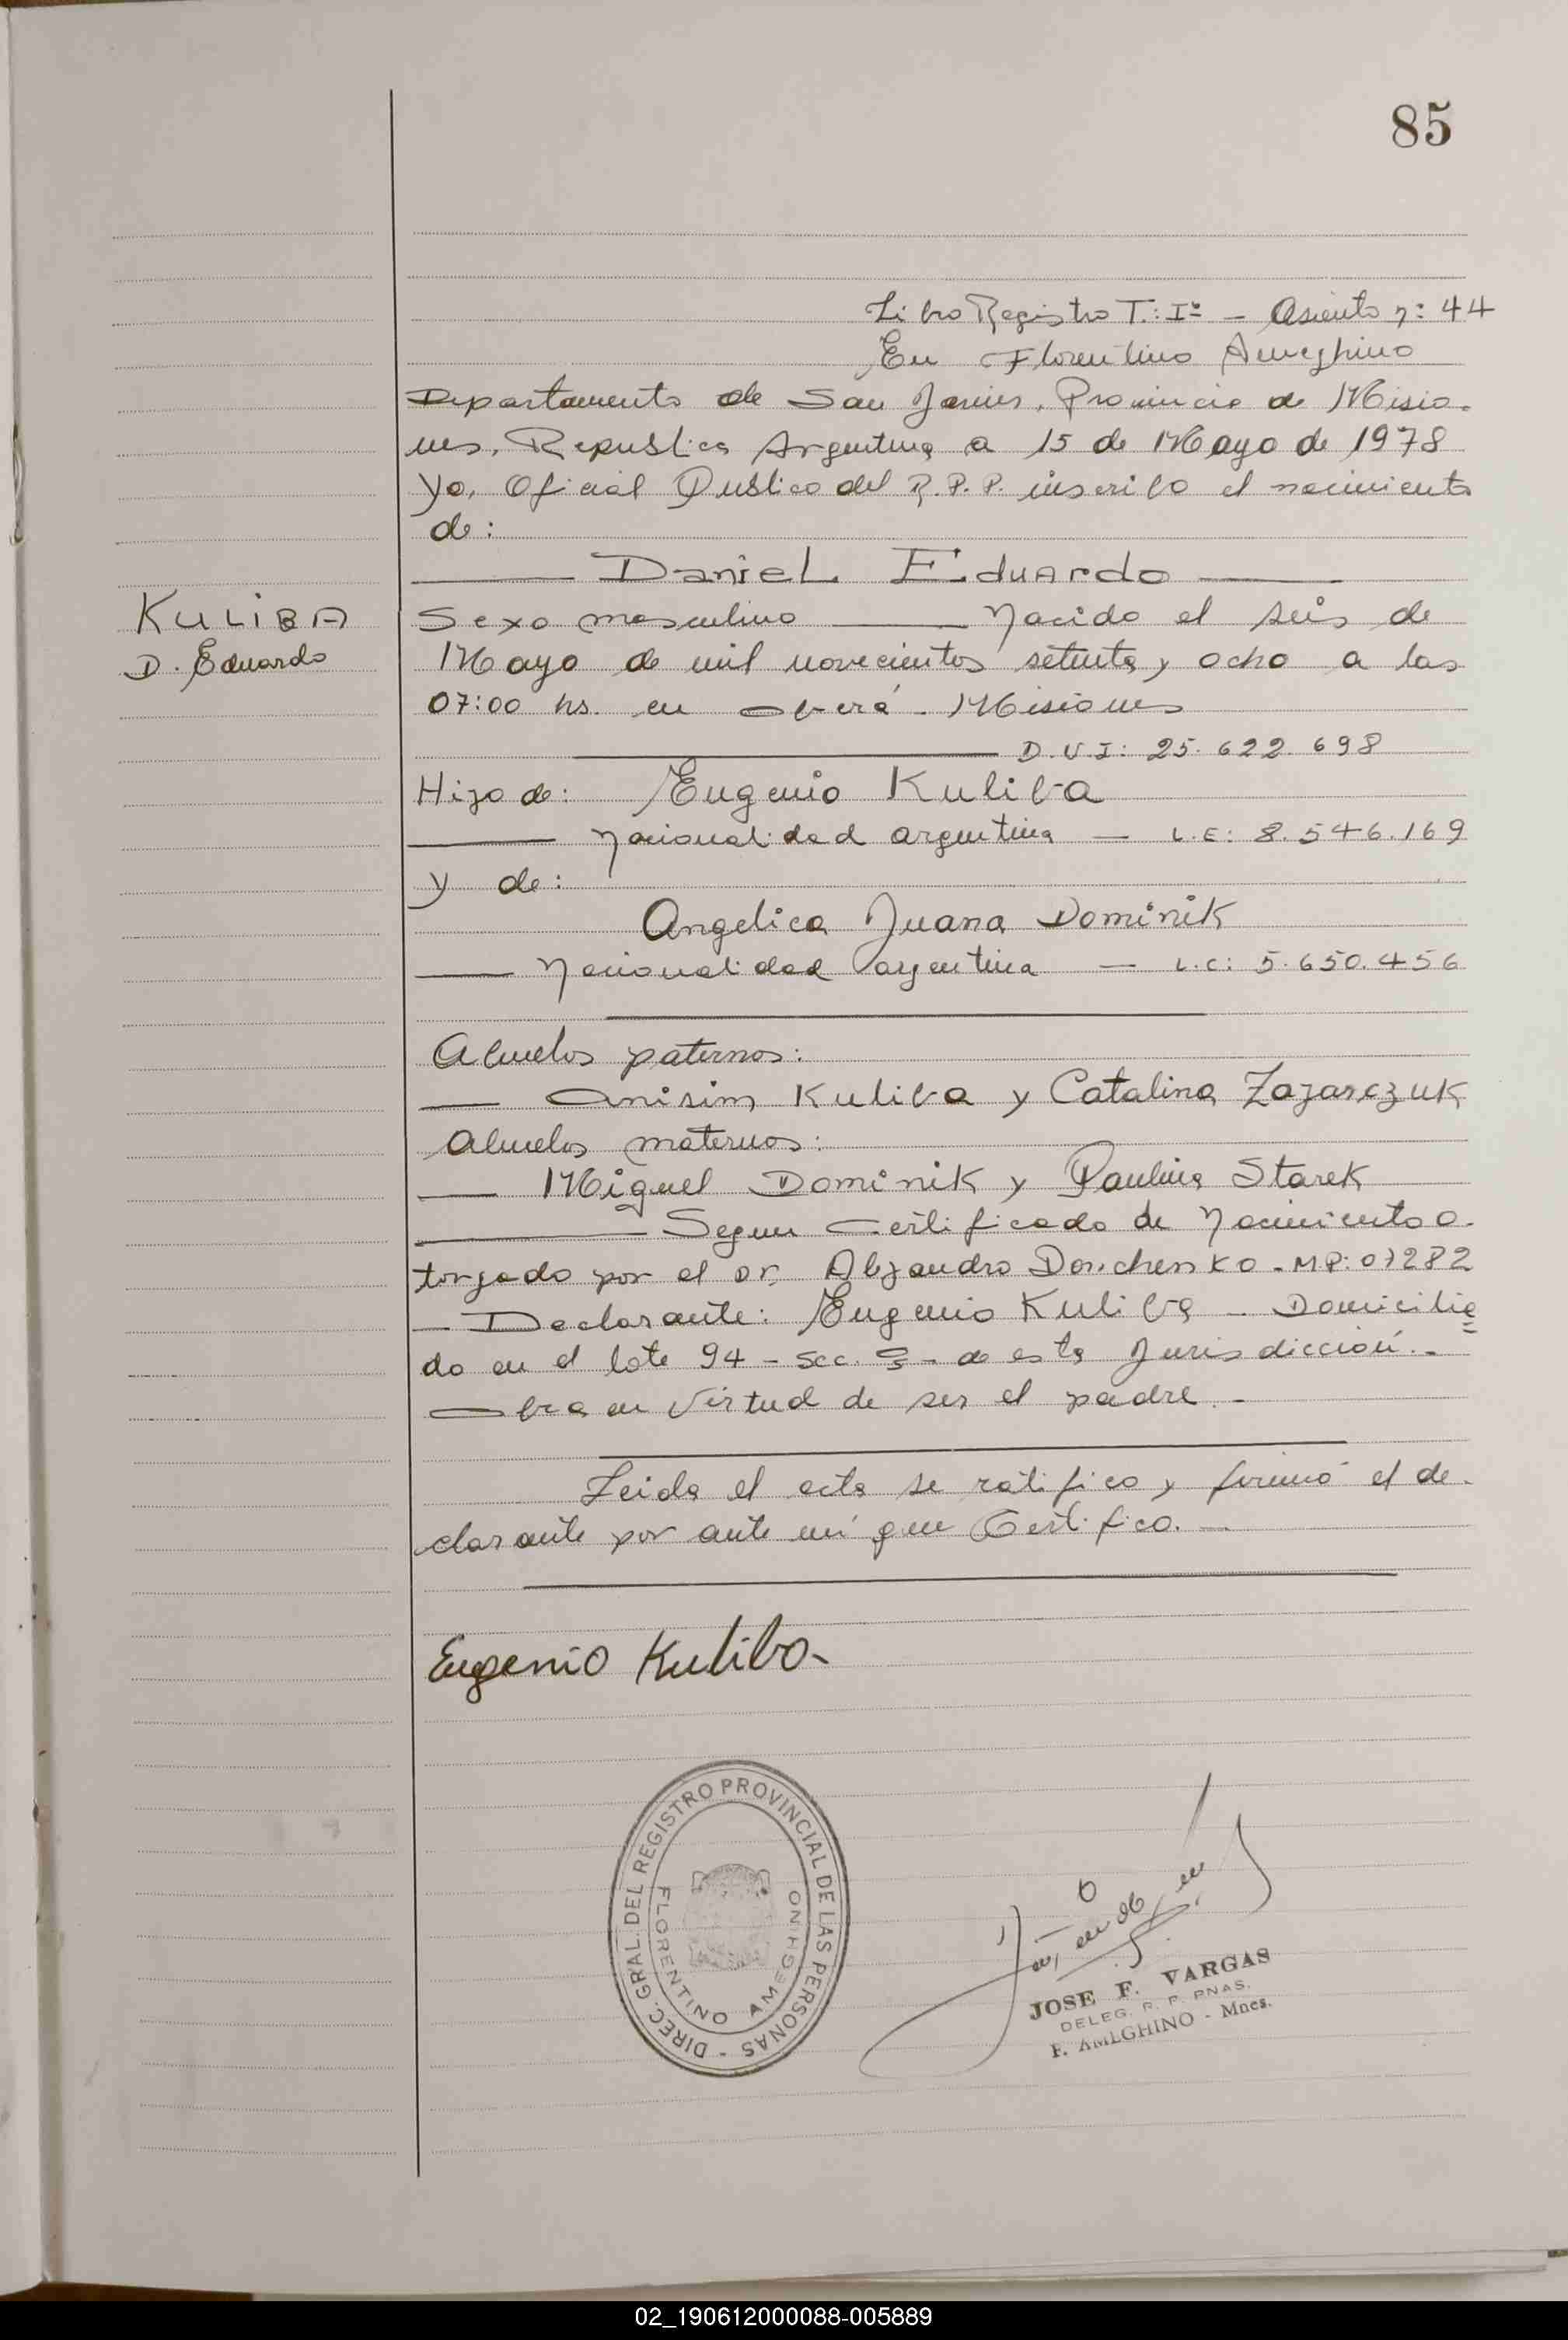 85
Libro Registro T.: Iº - Asiento n: 44
En Florentino Ameghino
Departamento de San Javier. Provincia de Misio-
nes. Republica Argentina a 15 de Mayo de 1978
Yo, Oficial Publico del R.P.P. inscribo el nacimiento
de:
Daniel Eduardo
KULIBA
D. Eduardo
Sexo masculino Nacido el seis de
Mayo de mil novecientos setenta y ocho a las
07:00 hs. en Oberá - Misiones
D.U.I: 25.622.698
Hijo de: Eugenio Kuliba
Nacionalidad argentina - L.E: 8.546.169
y de:
Angelica Juana Dominik
Nacionalidad argentina - L.C: 5.650.456
Abuelos paternos:
Anisim Kuliba y Catalina Zazarczuk
Abuelos maternos:
Miguel Dominik y Paulina Starek
Segun Certificado de Nacimiento o-
torgado por el Dr. Alejandro Dorchenko - MP: 01282
- Declarante: Eugenio Kuliba - Domicilia
do en el lote 94 - Sec. - de esta Jurisdicción.-
Obra en Virtud de ser el padre.-
Leida el acta se ratifico y firmó el de-
clarante por ante mí que Certifico.-
Eugenio Kuliba-
DIREC. GRAL. DEL REGISTRO PROVINCIAL DE LAS PERSONAS -
FLORENTINO AMEGHINO
JOSE F. VARGAS
DELEG. R. P. PNAS.
F. AMEGHINO - Mnes.
02_190612000088-005889